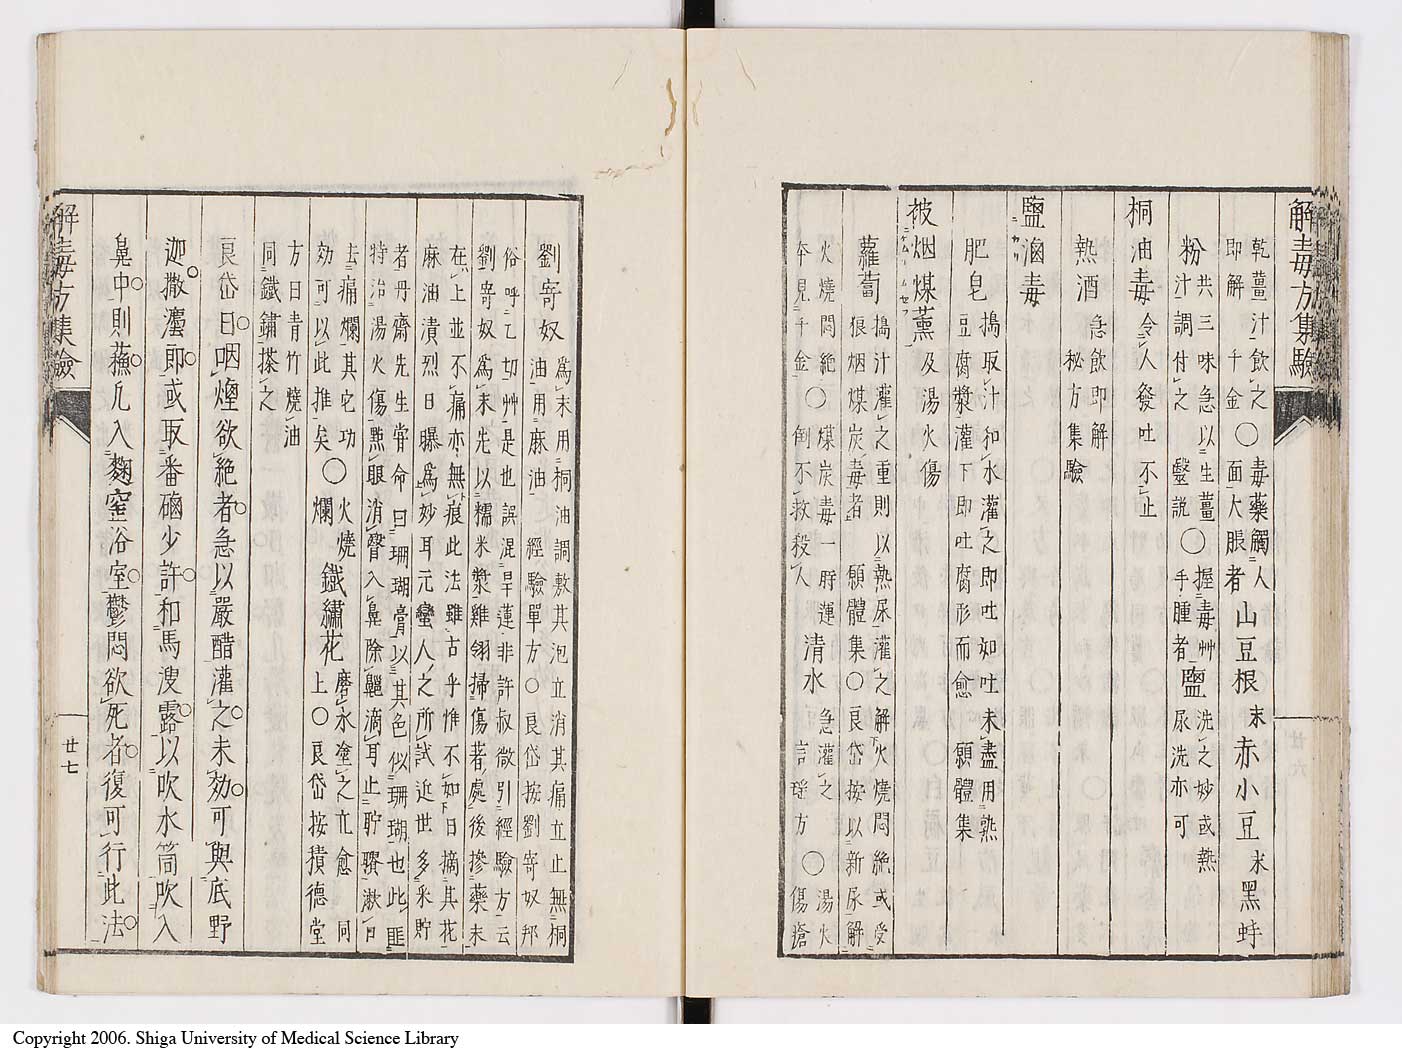 解毒方集驗
乾薑汁飲之
即解 千金 〇
毒藥觸人
面大脹者
山豆根末赤小豆末黑蚌
粉
共三味急以生薑
汁調付之 毉説 〇
握毒艸
手腫者
鹽
洗之妙或熱
尿洗亦可
桐油毒 令人發吐不止
熱酒
急飲即解
秘方集驗
鹽滷毒
ニガリ
肥皂
搗取汁和水灌之即吐如吐未盡用熱
豆腐漿灌下即吐腐形而愈 願體集
被烟煤薰 及湯火傷
蘿蔔
搗汁灌之重則以熱尿灌之解火燒悶絶或受
狼烟煤炭毒者 願體集〇良岱按以新尿解
火燒悶絶〇
夲見千金
煤炭毒一時運
倒不救殺人
清水
急灌之
言瑶方 〇
湯火
傷瘡
廿六
劉寄奴
爲末用桐油調敷其泡立消其痛立止無桐
油用麻油 經驗單方〇良岱按劉寄奴邦
俗呼乙切艸是也誤混旱蓮非許叔微引經驗方云
劉寄奴爲末先以糯米漿雞翎掃傷著處後摻藥末
在上並不痛亦無痕此法雖古乎惟不如日摘其花
麻油漬烈日曝爲妙耳元蠻人之所試近世多釆貯
者丹齋先生常命曰珊瑚膏以其色似珊瑚也此匪
特治湯火傷㸃眼消瞖入鼻除齆滴耳止漱口
去痛爛其它功
効可以此推矣〇
火燒
爛
鐵鏽花
磨水塗之立愈 同
上〇良岱按積德堂
方曰青竹燒油
同鐵鏽搽之
良岱曰咽煙欲絶者急以嚴醋灌之未効可與底野
迦撒灋郎或取番硇少許和馬溲露以吹水筒吹入
鼻中則蘓凡入麴窒浴室鬱悶欲死者復可行此法
解毒方集驗
廿七
Copyright 2006. Shiga University of Medical Science Library